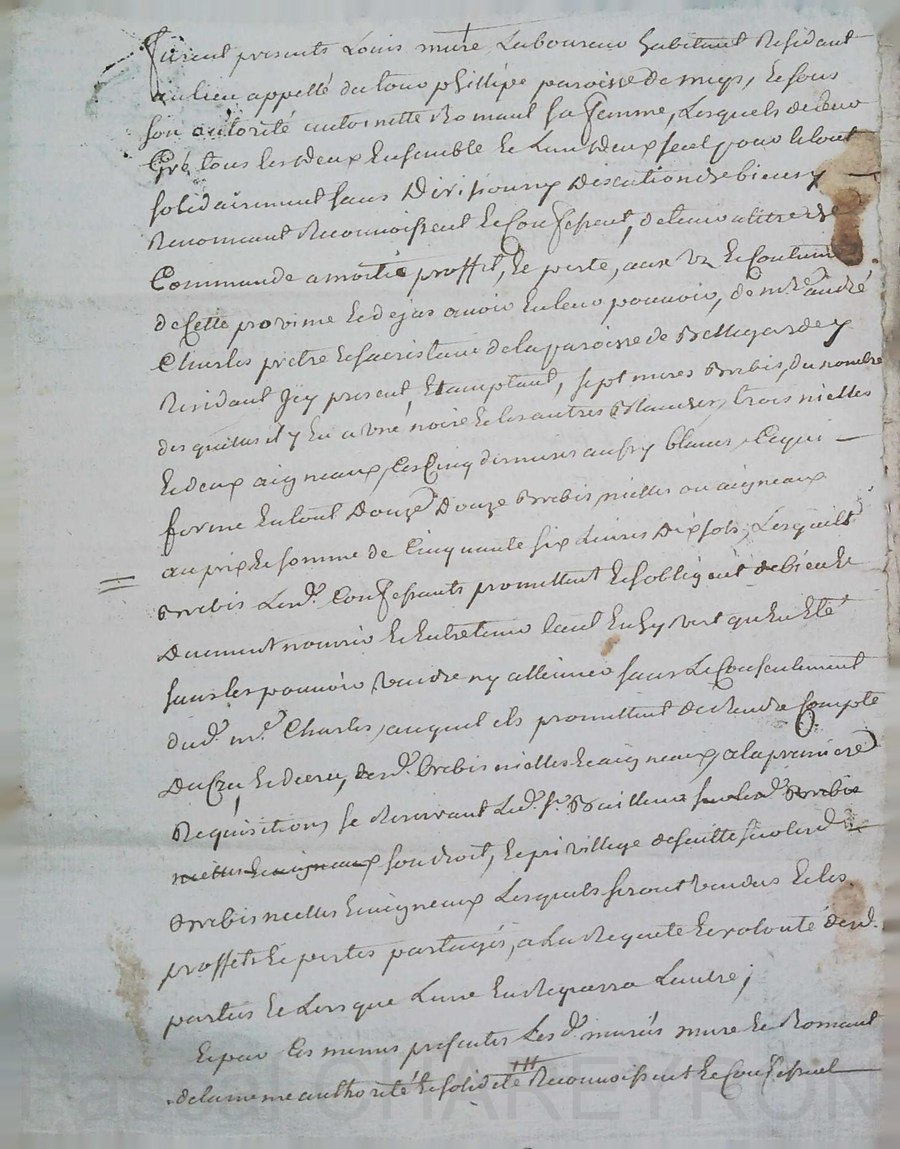 furent presents Louis mure Laboureur habitant Residant
au lieu appellé du tour phillipe paroisse de meys, Et sous
son autorité antoinette Romand sa femme, Lesquels de leur
Gré tous les deux Ensemble Et L'un d'eux seul pour le tout
solidairement sans Division ny Discution de biens y
Renonçant Reconnoissent Et Confessent, detenir a titre de
Commande a moitié proffit, Et perte, aux us Et Coutume
de Cette province Et dejas avoir En leur pouvoir, de mre andré
Charles prêtre Et sacristain de la paroisse de Bellegarde y
Residant Jcy present, Et acceptant, sept meres Brebis, du nombre
des quelles il y En a une noire Et les autres Blanches, trois nielles
Et deux aigneaux, Ces Cinq derniers aussy blancs, Ce qui
forme En tout Douze Brebis nielles ou aigneaux
au prix Et somme de Cinquante six Livres Dix sols, Lesquels
Brebis Lesd. Confessants promettent Et sobligent de bien Et
Duement nourrir Et Entretenir tant En hyvert qu'En Eté
sans les pouvoir vendre ny alliener sans Le Consentement
dud. mre Charles, auquel ils promettent de Rendre Compte
Du Cru, Et decru, desd. brebis nielles Et aigneaux, a la premiere
Requisitions se Reservant Led. sr. Bailleur sur Lesd. Brebis
nielles Et aigneaux son droit, Et privillege de suitte sur lesd.
Brebis nielles Et aigneaux Lesquels seront vendus Et les
proffits Et pertes partagés, a La Requete Et volonté desd.
parties Et Lors que L'une En Requerra L'autre;
Et par Ces memes presentes Lesd. mariés mure Et Romand
de la meme authorité Et solidité Reconnoissent Et Confessent
CHAREYRON